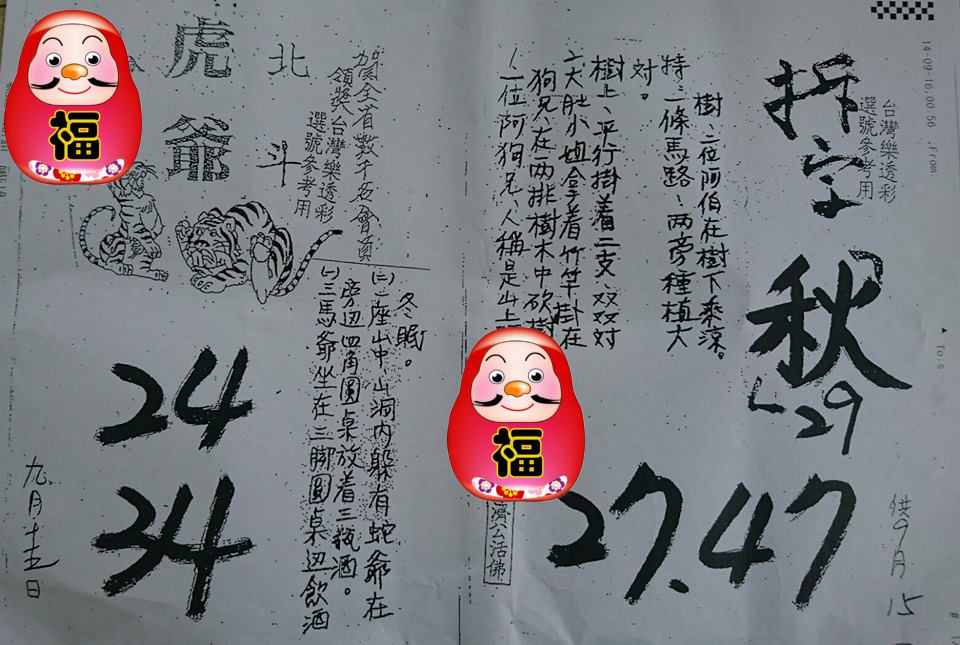 台灣樂透彩
選號參考用
拆字
秋
29
27.47
供9月15
樹二位阿伯在樹下乘涼。
特：二條馬路！兩旁種植大
對。
樹上、平行掛着二支、双双对
大肚小姐拿着竹竿掛在
狗兄在兩排樹木中砍樹
1一位阿狗兄、人稱是山上
福
濟公活佛
賀全省數千名會員
領獎台灣樂透彩
選號參考用
北斗
虎爺
福
冬眠。
(二)一座山中山洞内躲有蛇爺在
旁边四角圓桌放着三瓶酒。
(一)三馬爺坐在三脚圓桌边飲酒
24
34
九月十五日